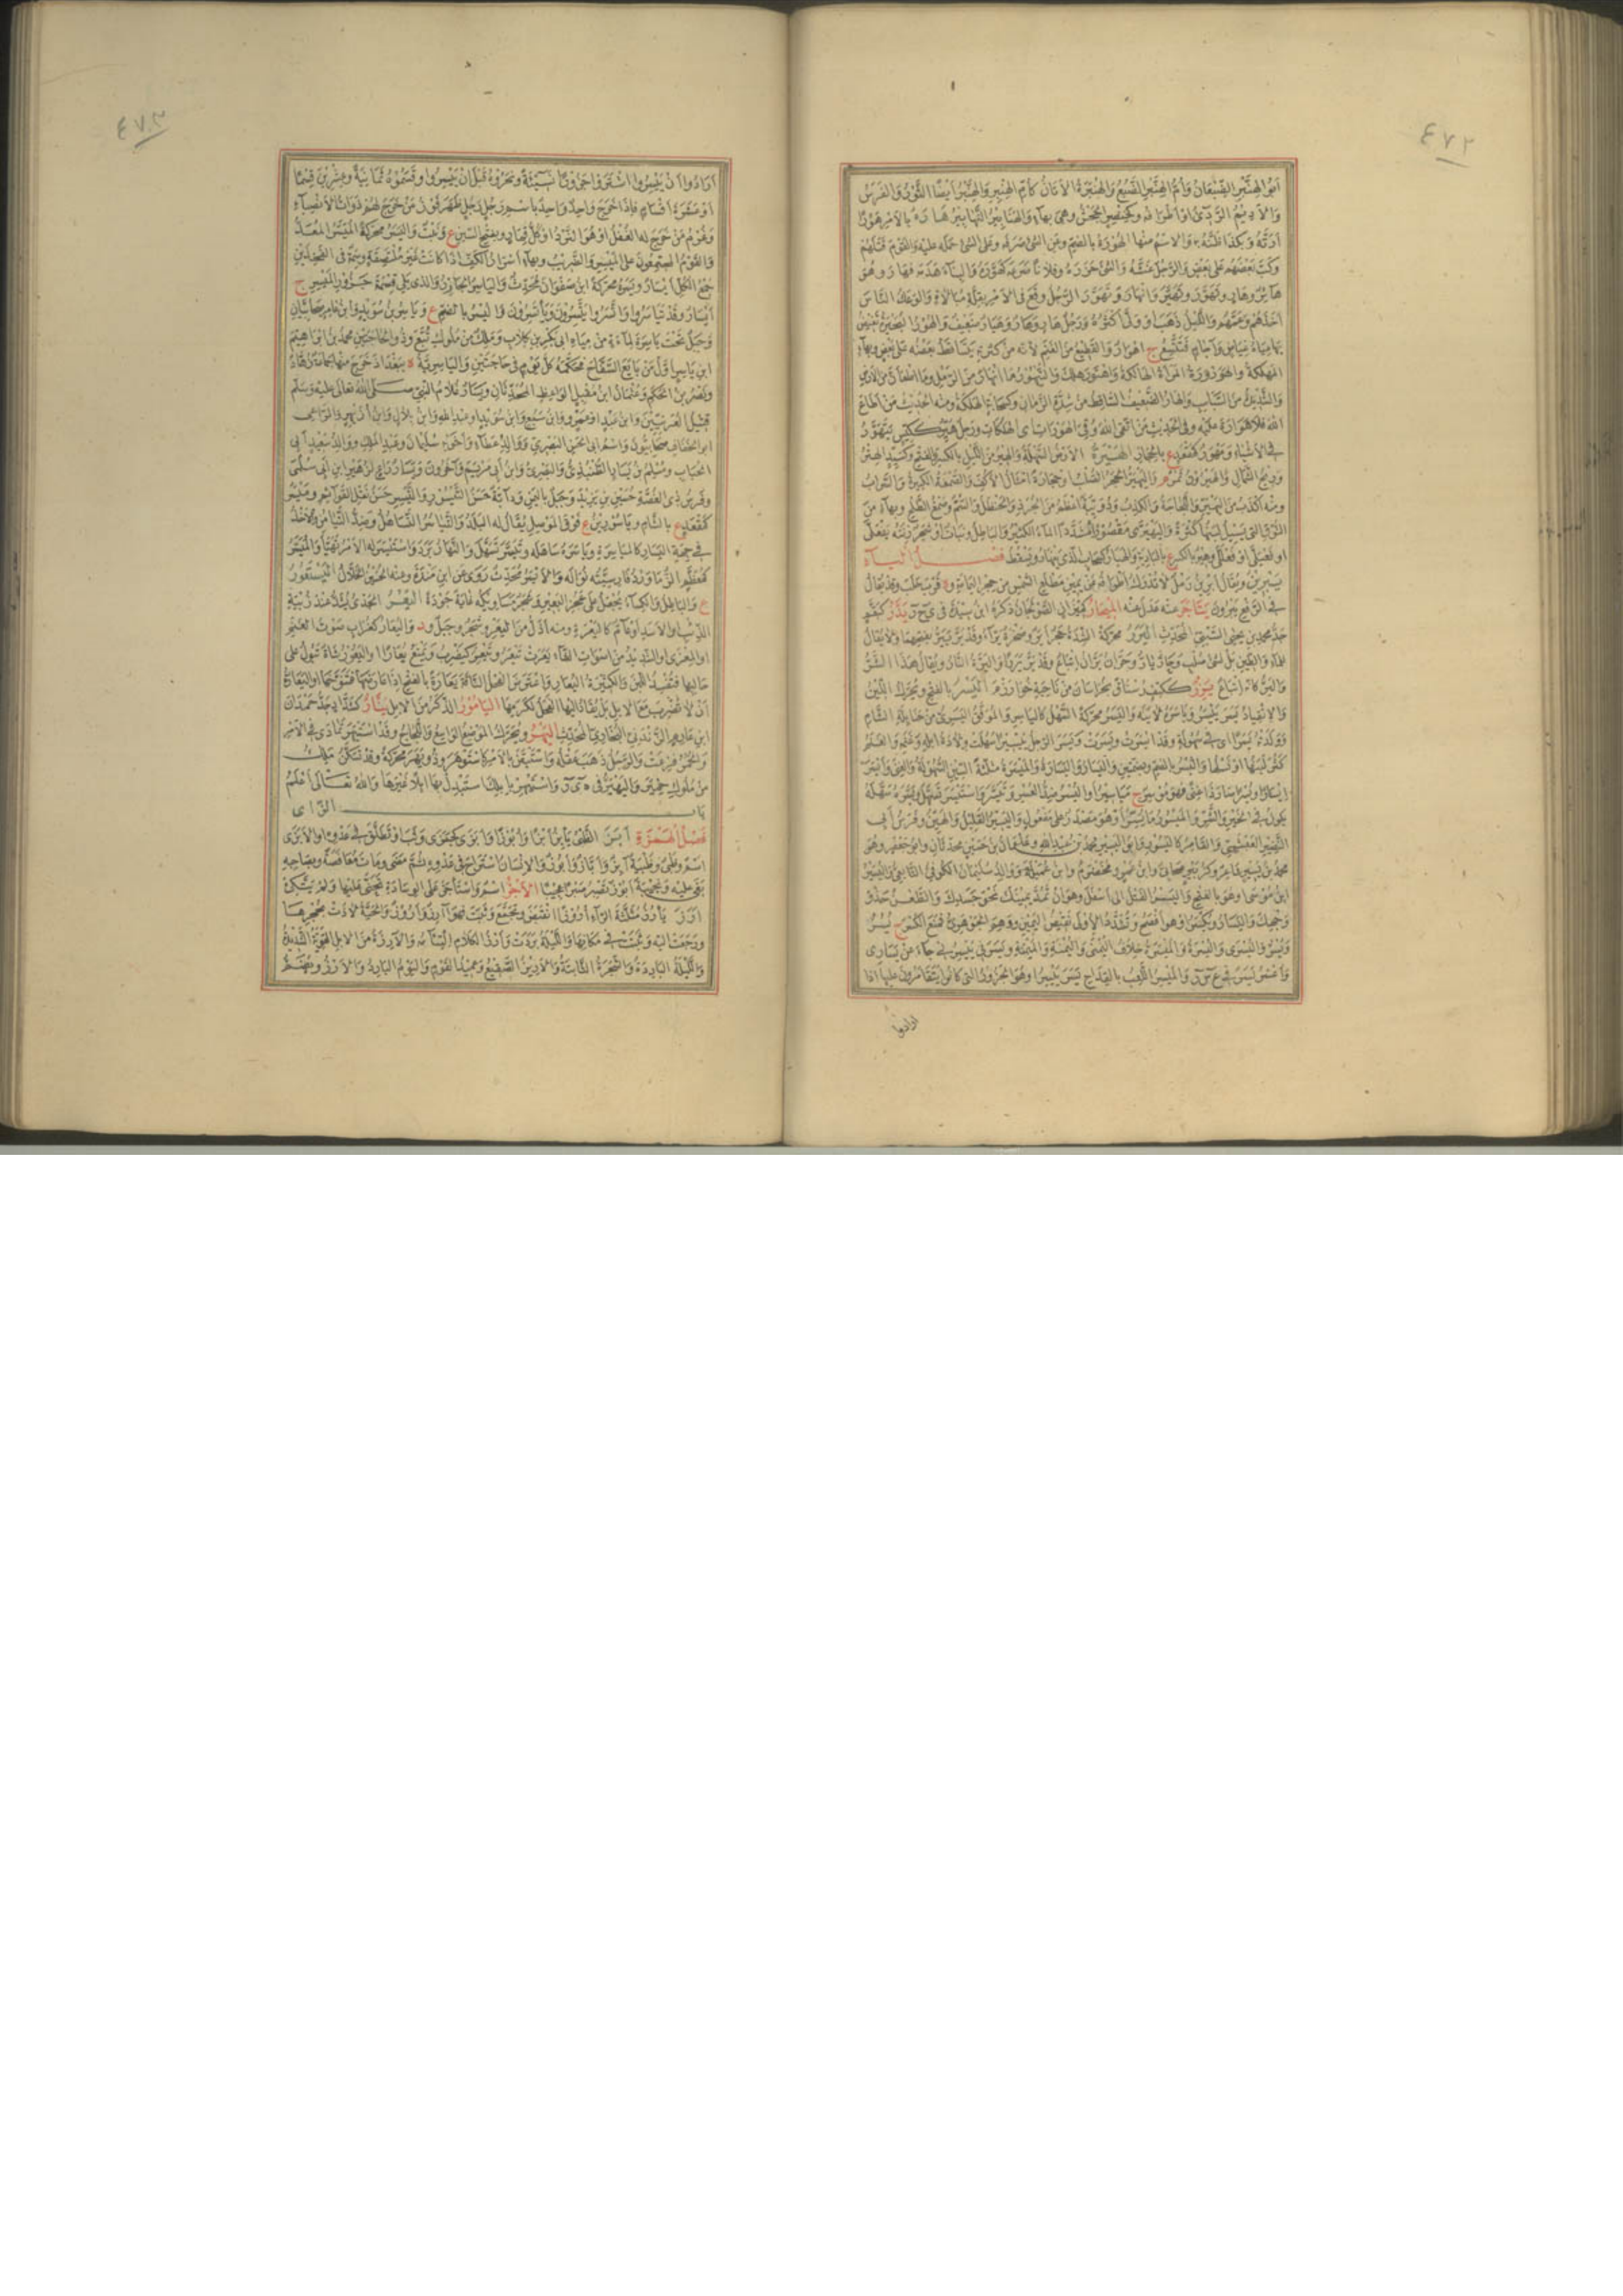 ٤٧٢
أبو الهنبر الضبعان وأم الهنبر الضبع والهنبرة الأتان كأم الهنبر والهنبر أيضا الثور والفرس
والأديم الردئ أو أطرافه
أزنه وبكذا ظننته به والاسم منهما الهورة بالضم وعن الشئ صرفه وعلى الشئ حمله عليه والقوم قتلهم
وكب بعضهم على بعض والرجل غشه والشئ حزره وفلانا صرعه كهوره والبناء هدمه فهار وهو
هائر وهار وتهور وتهير وانهار وتهور الرجل وقع في الأمر بقلة مبالاة والوعك الناس
أخذهم وعمهم والليل ذهب أو ولى أكثره ورجل هار وهار وهيار ضعيف والهور البحيرة تغيض
بها مياه غياض وآجام فتتسع ج أهوار والقطيع من الغنم لأنه من كثرته يتساقط بعضه على بعض وبهاء
المهلكة والهورورة المرأة الهالكة واهتور هلك والتيهور ما انهار من الرمل وما اطمأن من الأرض
والشديد من السباب والهار الضعيف الساقط من شدة الزمان وكسحابة الهلكة ومنه الحديث من أطاع
الله فلا هوارة عليه وفي الحديث من اتقى الله وقي الهورات أي الهلكات ورجل هير ككيس يتهور
في الأشياء
وريح الشمال
ومنه أكذب من اليهير
فصل الياء
يبرين ويقال أبرين رمل لا تدرك أطرافه عن يمين مطلع الشمس من حجر اليمامة و ة قرب حلب وقد يقال
في الرفع يبرون يتاجر عنه عدل عنه الميجار كميزان الصولجان ذكره ابن سيده في ي ج ر يدر كبقم
جد محمد بن يحيى الشيبي المحدث اليرر محركة الشدة حجر أير وصخرة يراء وقد ير ييير بفتحهما ولا يقال
للماء والطين بل لشئ صلب وحار يار وحران يران إتباع وقد ير يرا واليرة النار ويقال هذا الشر
والير كأنه إتباع يزر ككتف رستاق بخراسان من ناحية خوارزم اليسر بالفتح ويحرك اللين
والانقياد يسر ييسر وياسره لاينه واليسر محركة السهل كالياسر والموفق اليسري من حنابلة الشام
وولدته يسرا أي في سهولة وقد أيسرت ويسرت ويسر الرجل تيسيرا سهلت ولادة إبله وغنمه والغنم
كثر لبنها أو نسلها واليسر بالضم وبضمتين واليسار واليسارة والميسرة مثلثة السين السهولة والغنى وأيسر
إيسارا ويسرا صار ذا غنى فهو موسر ج مياسير واليسر ضد العسر وتيسر واستيسر تسهل ويسره سهله
يكون في الخير والشر والميسور ما يسر أو هو مصدر على مفعول واليسير القليل والهين وفرس أبي
النضير العبشمي والقامر كالياسر وأبو اليسير محمد بن عبد الله وعثمان بن حسين محدثان وأبو جعفر وهو
محمد بن يسير شاعر وكزبير صحابي وابن عمرو مخضرم وابن عميلة ووالد سليمان الكوفي التابعي واليسر
ابن موسى أو هو بالفتح واليسر الفتل إلى أسفل وهو أن تمد يمينك نحو جسدك والطعن حذو
وجهك واليسار ويكسر وهو أفصح وتشدد الأولى نقيض اليمين ووهم الجوهري فمنع الكسر ج يسر
ويسر واليسرى واليسرة والميسرة خلاف اليمنى واليمنة والميمنة ويسرني ييسرني جاء عن يساري
وأعسر يسر في ع س ر والميسر اللعب بالقداح يسر ييسر أو هو الجزور التي كانوا يتقامرون عليها إذا
أرادوا
٤٧٣
أرادوا أن ييسروا اشتروا جزورا نسيئة ونحروه قبل أن ييسروا وقسموه ثمانية وعشرين قسما
أو عشرة أقسام فإذا خرج واحد واحد باسم رجل رجل ظهر فوز من خرج لهم ذوات الأنصباء
وغرم من خرج له الغفل أو هو النرد أو كل قمار وبفتح السين ع ونبت واليسر محركة الميسر المعد
والقوم المجتمعون على الميسر والضريب وبهاء أسرار الكف إذا كانت غير ملتصقة وسمة في الفخذين
جمع الكل أيسار ويسرة محركة ابن صفوان محدث والياسر الجازر والذي يلي قسمة جزور الميسر ج
أيسار وقد تياسروا واتسروا يتسرون ويأتسرون واليسر بالضم ع وياسر بن سويد وابن عامر صحابيان
وجبل تحت ياسرة لماءة من مياه أبي بكر بن كلاب وملك من ملوك تبع وذو الحاجتين محمد بن إبراهيم
ابن ياسر أول من بايع السفاح فحكمه كل يوم في حاجتين والياسرية ة ببغداد خرج منها جماعة زهاد
ونصر بن الحكم وعثمان بن مقبل الواعظ المحدثان ويسار غلام النبي صلى الله تعالى عليه وسلم
قتيل العرنيين وابن عبد أو عمرو وابن سبع وابن سويد أو عبد الله وابن بلال وابن أزيهر والراعي
صحابيون واسم أبي الحسن البصري ووالد عطاء وأخويه سليمان وعبد الملك ووالد سعيد أبي
الحباب ومسلم بن يسار الطنبذي والبصري وابن أبي مريم وآخرون ويسار راع لزهير بن أبي سلمى
وفرس ذي الغصة حصين بن يزيد وجبل باليمن ودابة حسن التيسور والتيسير حسن نقل القوائم وميسر
كمقعد ع بالشام وياسورين ع فوق الموصل يقال له البلد والتياسر التساهل وضد التيامن والأخذ
في جهة اليسار كالمياسرة وياسره ساهله وتيسر تسهل والنهار برد واستيسر له الأمر تهيأ والميسر
كمعظم الزماورد فارسيته نواله والأيسر محدث روى عن ابن مندة وعنه الحسين الخلال اليستعور
ع والباطل والكساء يجعل على عجز البعير وشجر مساويكه غاية جودة اليعر الجدي يشد عند زبية
الذئب أو الأسد أو عام كاليعرة ومنه أذل من اليعر وشجر وجبل و د واليعار كغراب صوت الغنم
أو المعزى أو الشديد من أصوات الشاء يعرت تيعر وتيعر كيضرب ويمنع يعارا واليعور شاة تبول على
حالبها فتفسد اللبن والكثيرة اليعار
أن لا تضرب مع الإبل بل يقاد إليها الفحل لكرمها اليامور الذكر من الإبل ينار كشداد جد حمدان
ابن عارم الزندي البخاري المحدث اليهر ويحرك الموضع الواسع واللجاج وقد استيهر تمادى في الأمر
والحمر فزعت والرجل ذهب عقله واستيقن بالأمر كاستوهر وذو يهر محركة وقد تسكن ملك
من ملوك حمير واليهير في ه ي ر واستيهر بإبلك استبدل بها إبلا غيرها والله تعالى أعلم
باب الزاى
فصل الهمزة أبز الظبي يأبز أبزا وأبوزا وأبزى كجمزى وثب أو تطلق في عدوه أو الأبزى
اسم وظبي وظبية آبز وأباز وأبوز والإنسان استراح في عدوه ثم مضى ومات معافصة وبصاحبه
بغى عليه ونجيبة أبوز تصبر صبرا عجيبا الأجز اسم واستأجز على الوسادة تحنى عليها ولم يتكئ
أرز يأرز مثلثة الراء أروزا انقبض وتجمع وثبت فهو آرز وأروز والحية لاذت بجحرها
ورجعت إليه وثبتت في مكانها والليلة بردت وأرز الكلام التئامه والآرزة من الإبل القوية الشديدة
والليلة الباردة والشجرة الثابتة والأريز الصقيع وعميد القوم واليوم البارد والأرز ويضم